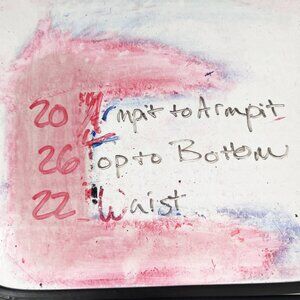 20 Armpit to Armpit
26 Top to Bottom
22 Waist